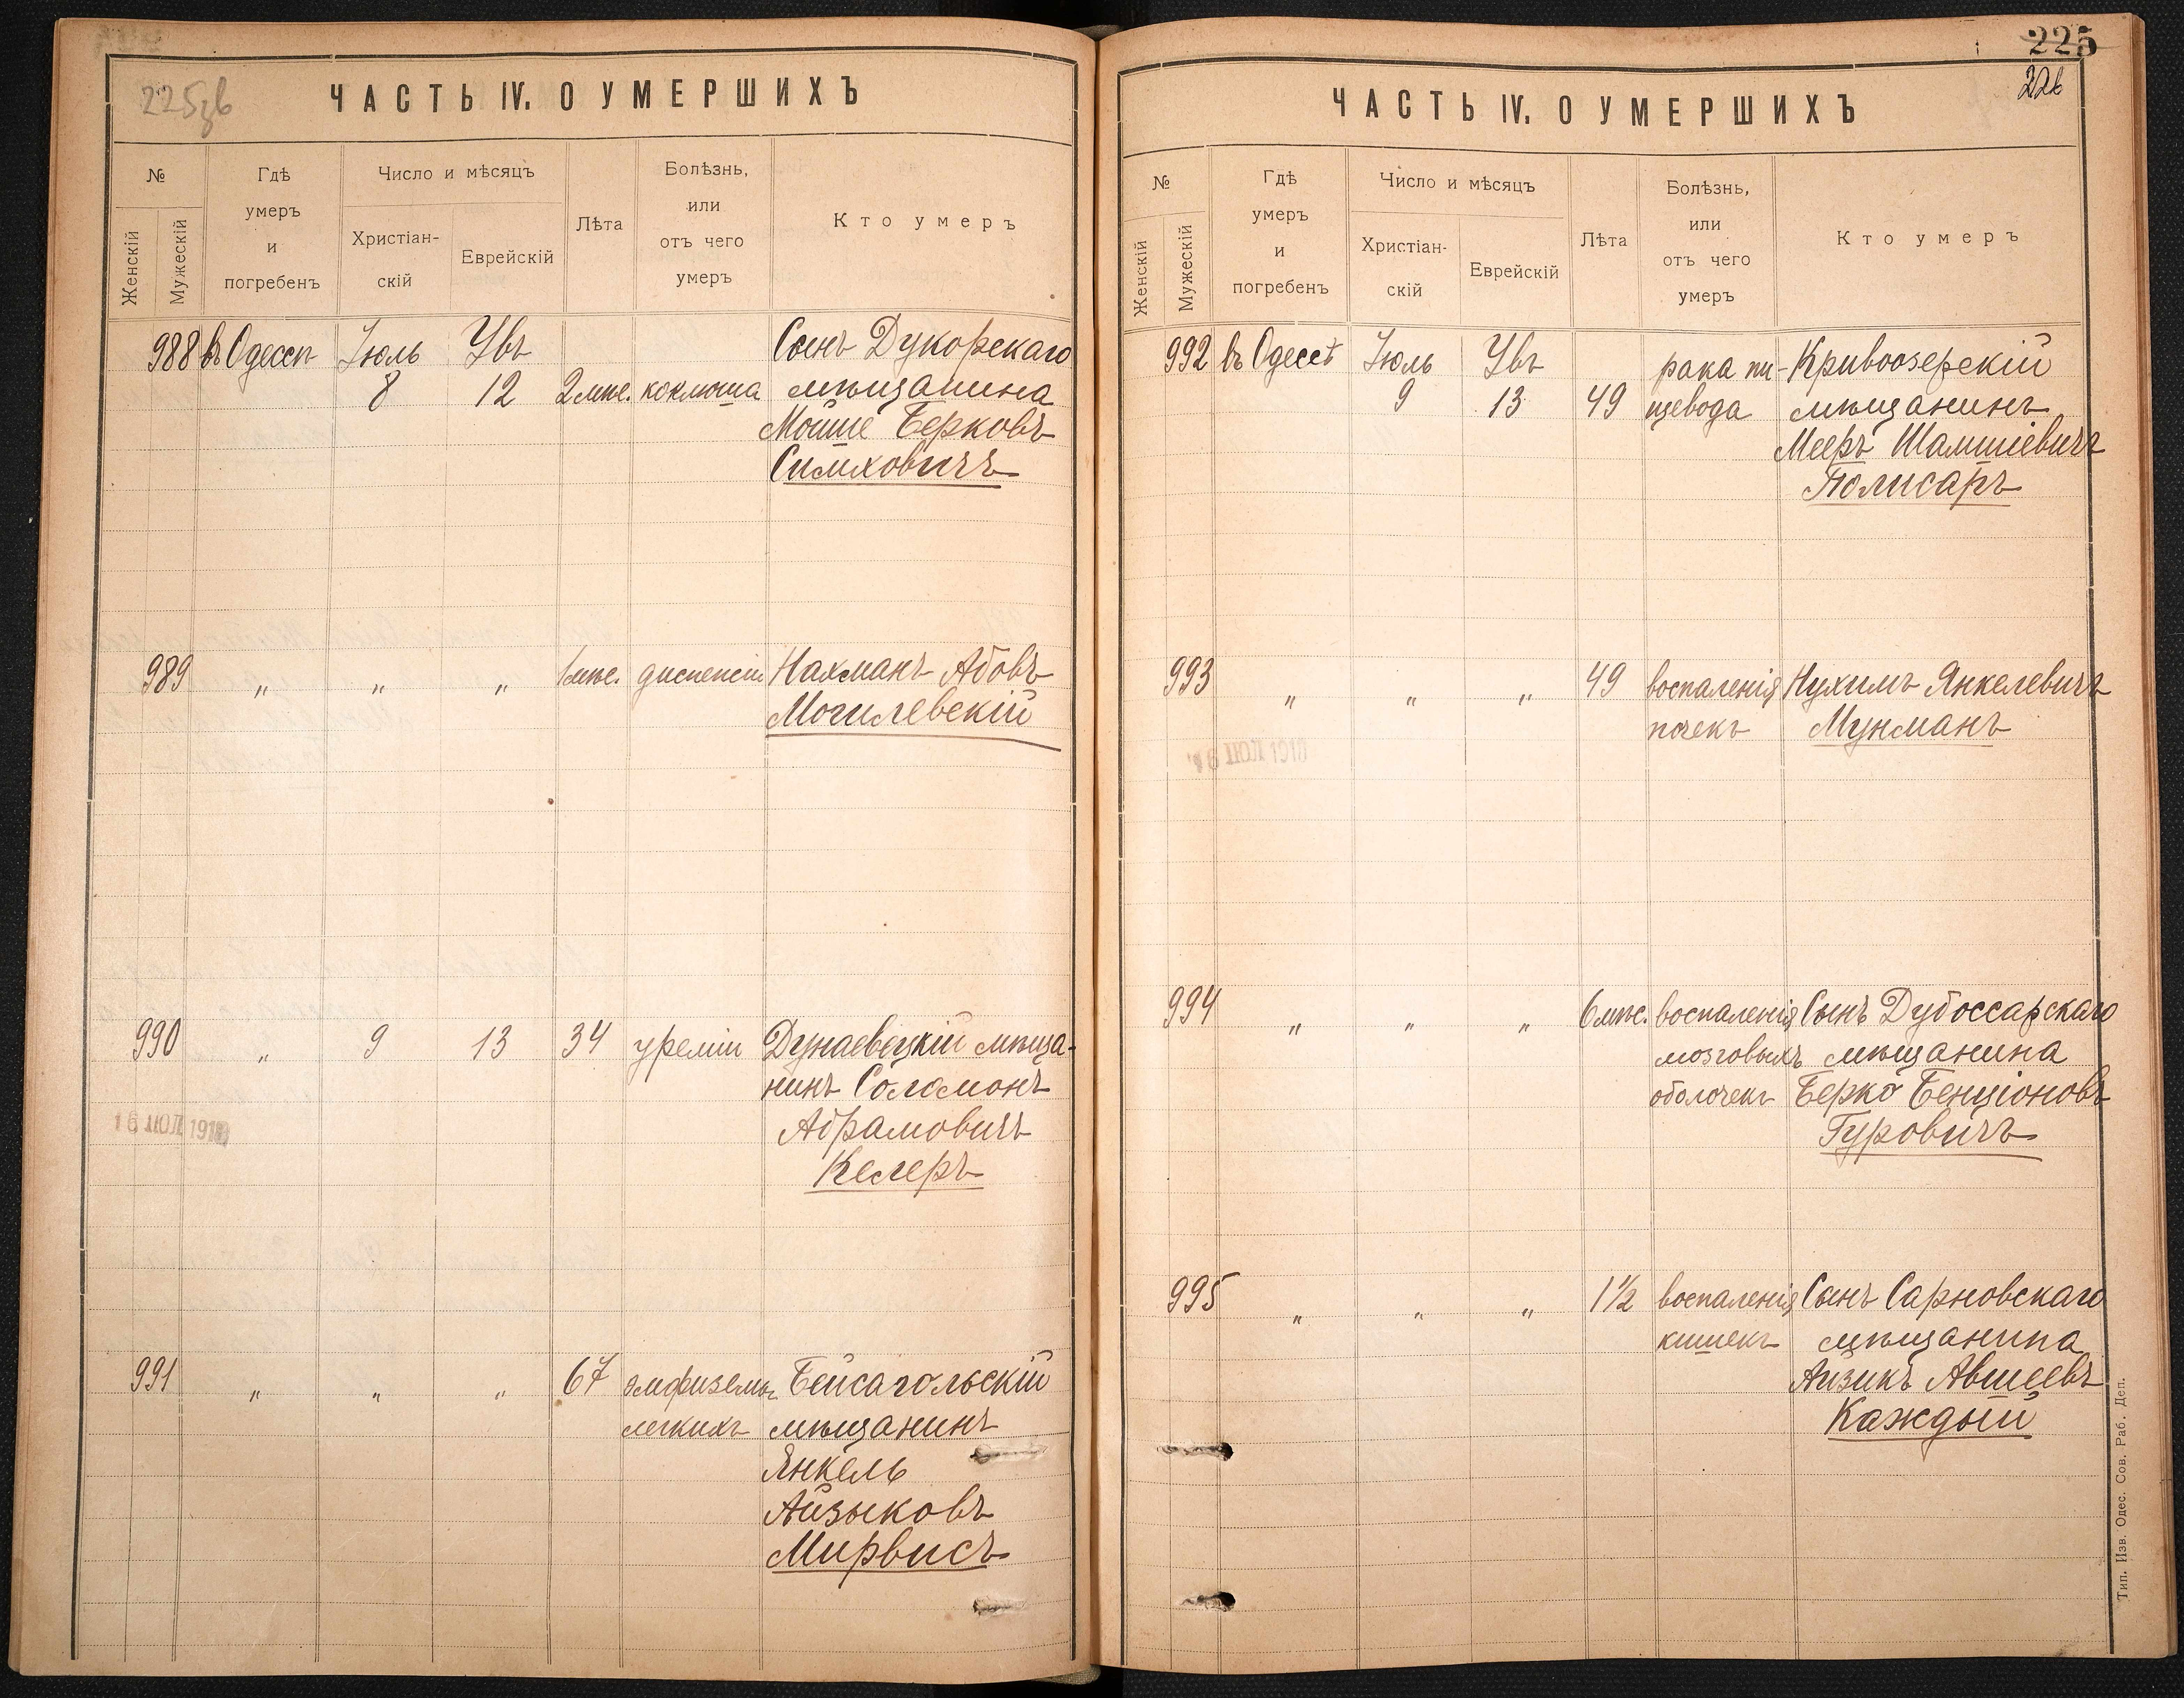 225об
ЧАСТЬ IV. О УМЕРШИХЪ
№
Женскій
Мужескій
Гдѣ
умеръ
и
погребенъ
Число и мѣсяцъ
Христіан-
скій
Еврейскій
Лѣта
Болѣзнь,
или
отъ чего
умеръ
Кто умеръ
988 въ Одессѣ Іюль Увъ Сынъ Дукорскаго
8 12 2 мѣс. коклюша мѣщанина
Мойше Берковъ
Симховичъ
989 " " " 1 мѣс. диспепсіи Нахманъ Абовъ
Могилевскій
990 " 9 13 34 уреміи Дунаевецкій мѣща-
нинъ Соломонъ
Абрамовичъ
16 ІЮЛ 191
Келеръ
991 " " " 67 эмфиземы Бейсагольскій
легкихъ мѣщанинъ
Янкель
Айзыковъ
Мирвисъ
225
226
ЧАСТЬ IV. О УМЕРШИХЪ
№
Женскій
Мужескій
Гдѣ
умеръ
и
погребенъ
Число и мѣсяцъ
Христіан-
скій
Еврейскій
Лѣта
Болѣзнь,
или
отъ чего
умеръ
Кто умеръ
992 въ Одессѣ Іюль Увъ рака пи- Кривоозерскій
9 13 49 щевода мѣщанинъ
Мееръ Шамшіевичъ
Полисаръ
993 " " " 49 воспаленія Нухимъ Янкелевичъ
почекъ Мунманъ
994 " " " 6 мѣс. воспаленія Сынъ Дубоссарскаго
мозговыхъ мѣщанина
оболочекъ Берко Бенціоновъ
Гуровичъ
995 " " " 1½ воспаленія Сынъ Сарновскаго
кишекъ мѣщанина
Айзикъ Авшеевъ
Каждый
Тип. Изв. Одес. Сов. Раб. Деп.